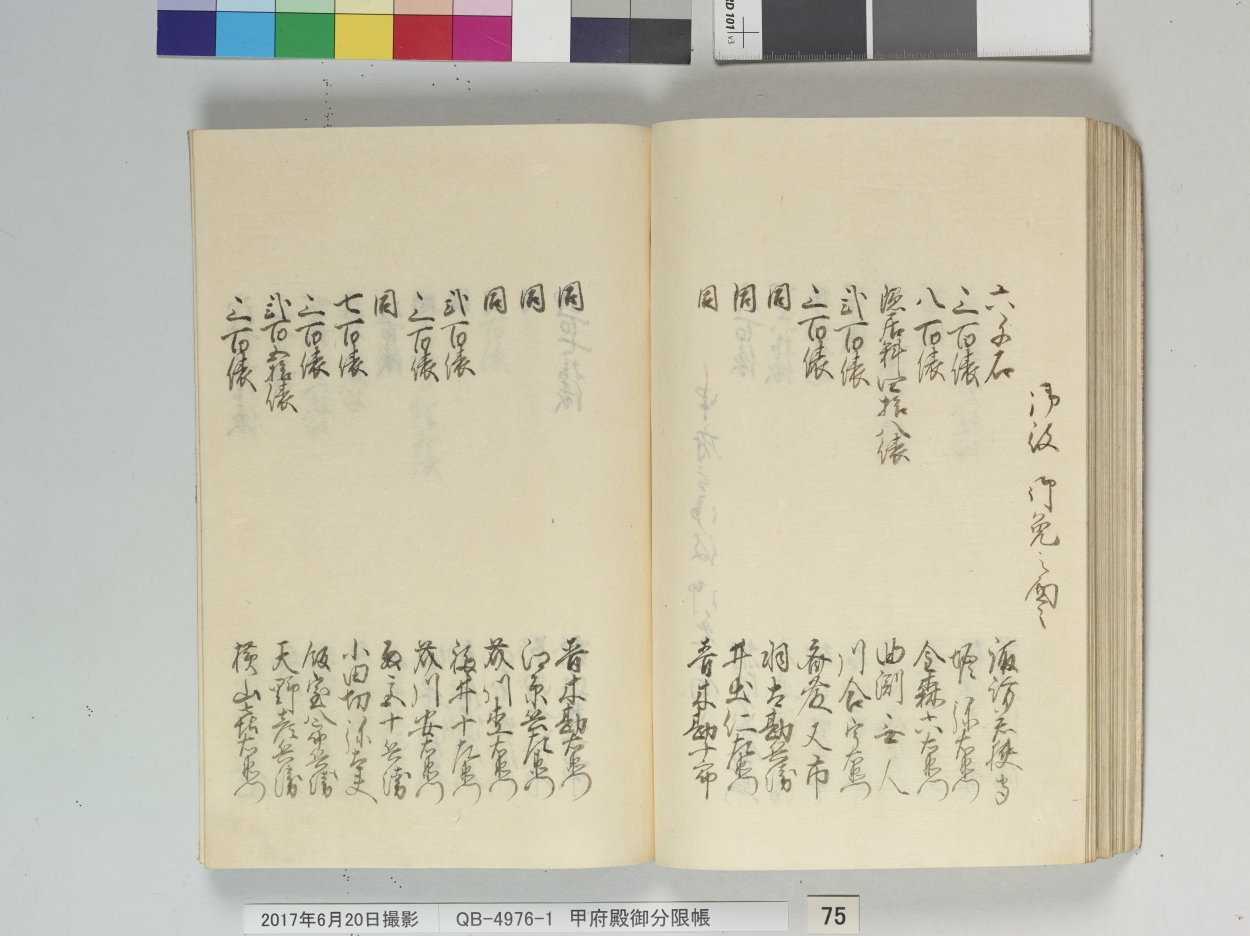 御役御免之面々
六千石 諏訪若狭守
三百俵 堀弥右衛門
八百俵 金森十六右衛門
隠居料四拾八俵 曲渕無人
弐百俵 川合宇右衛門
三百俵 斎藤又市
同 羽太勘兵衛
同 井出仁左衛門
同 青木勘十郎
同 青木勘右衛門
同 江原与左衛門
同
弐百俵 福井十左衛門
三百俵 安右衛門
同 十兵衛
七百俵 小田切弥太夫
三百俵 飯室八兵衛
弐百五拾俵 天野彦兵衛
三百俵 横山喜右衛門
2017年6月20日撮影 QB-4976-1 甲府殿御分限帳 75